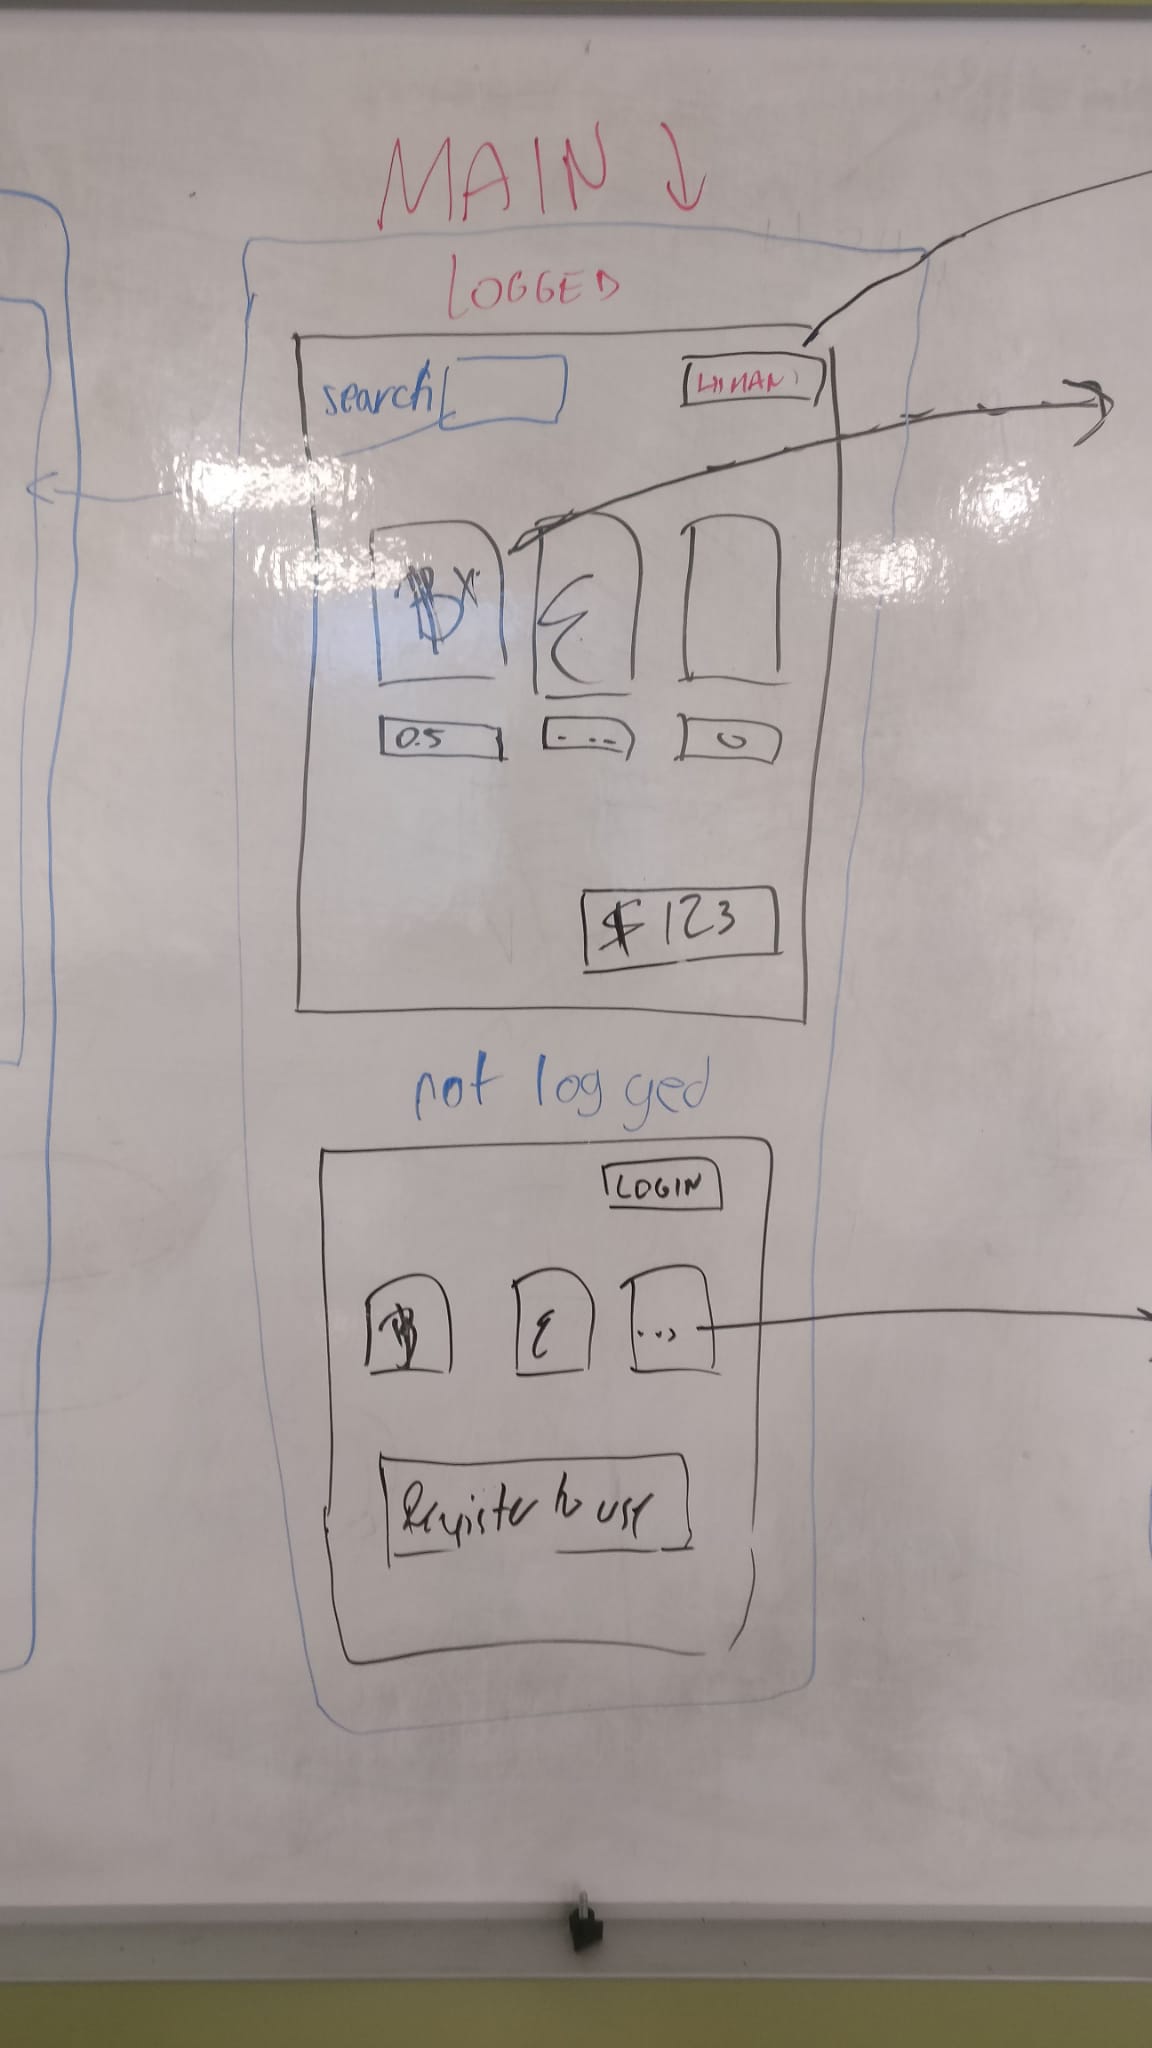 MAIN ↓
LOGGED
search
0.5 ... 0
$ 123
not logged
LOGIN
...
Register to use